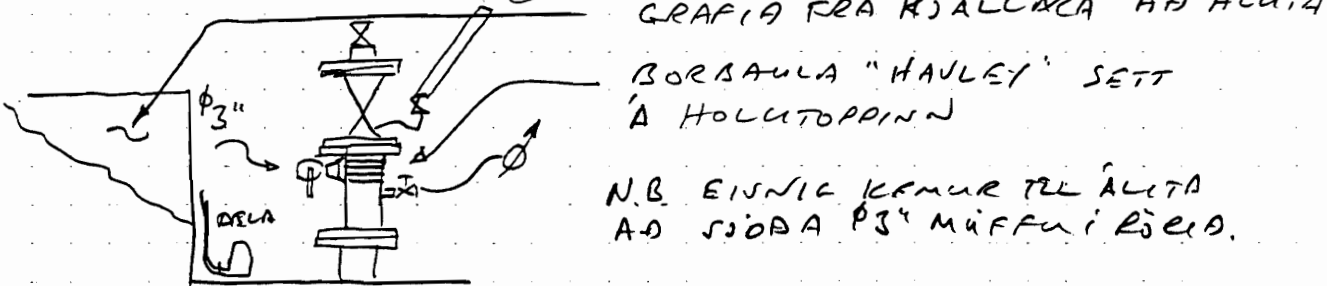 GRAFIA FRA KJALLARA AÐ
BORBAULA "HAVLEY" SETT
Á HOLUTOPPINN
φ3"
DÆLA
N.B. EINNIG KEMUR TIL ÁLITA
AÐ SJÓÐA φ3" MÚFFU Í RÖRIÐ.